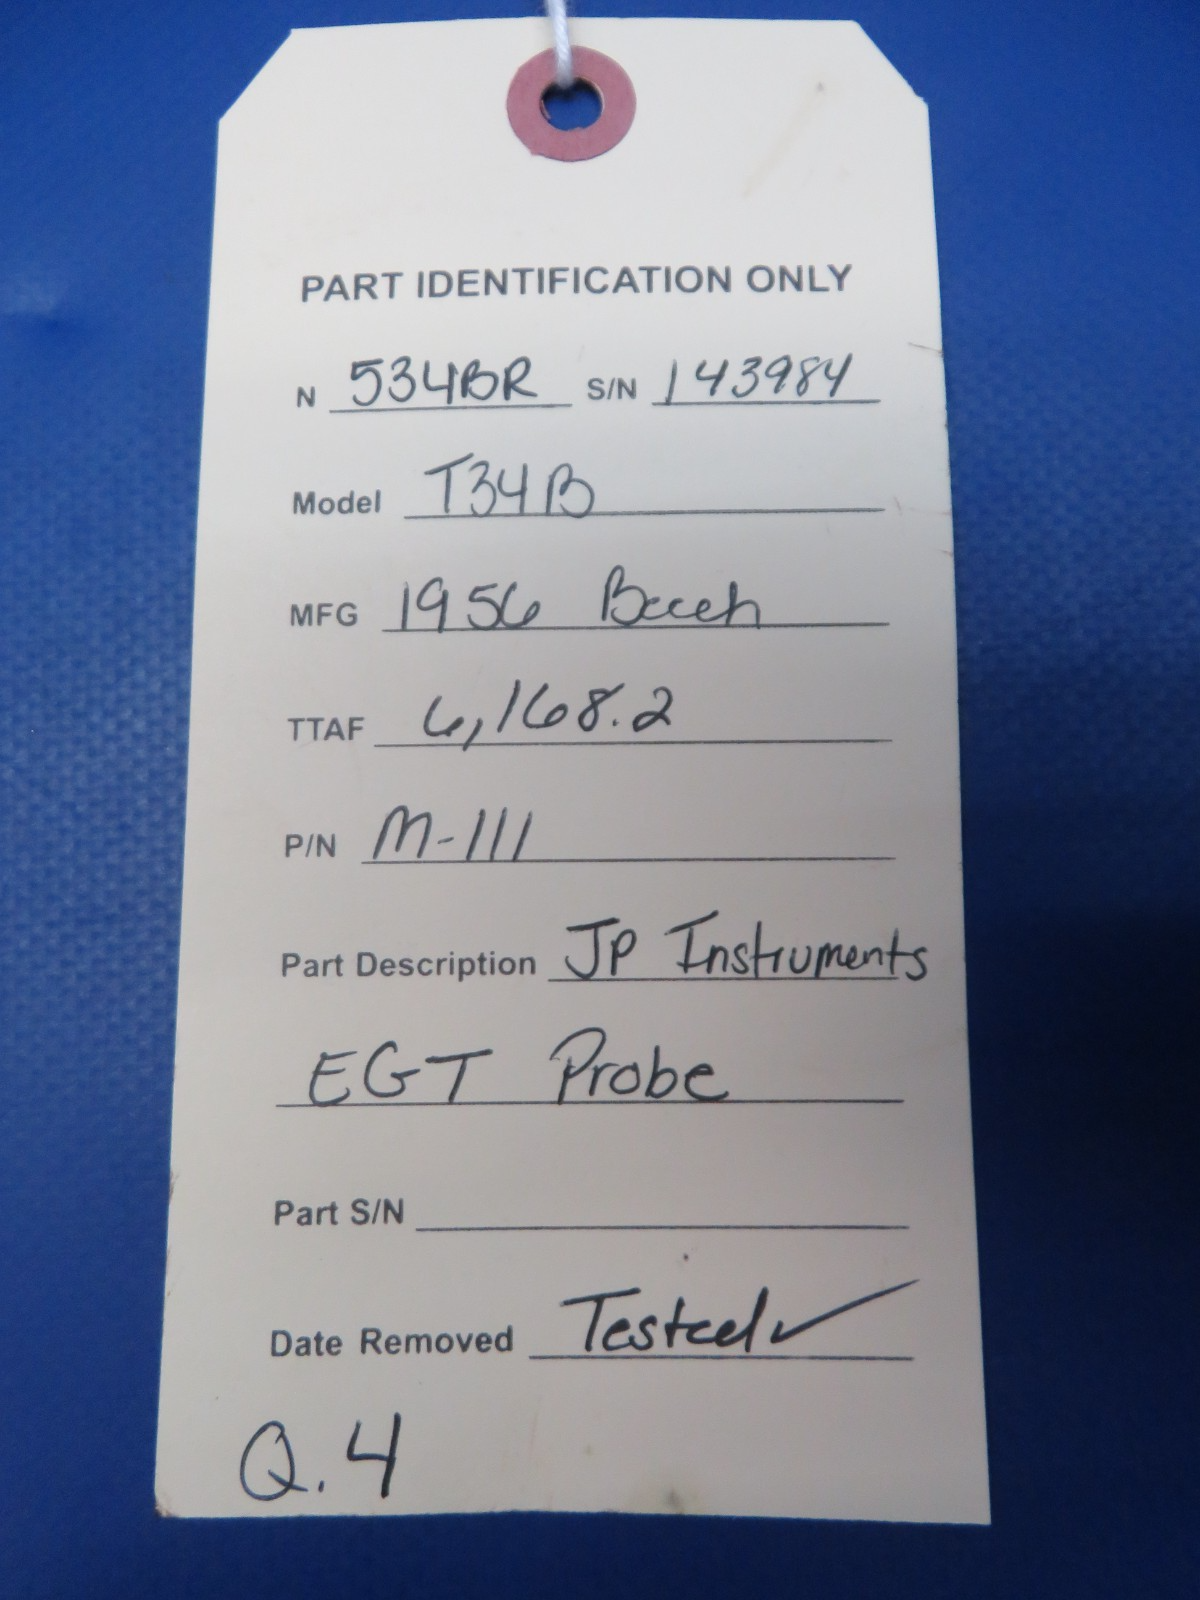 PART IDENTIFICATION ONLY
N 534BR S/N 143984
Model T34B
MFG 1956 Beech
TTAF 6,168.2
P/N M-111
Part Description JP Instruments
EGT Probe
Part S/N
Date Removed Tested ✓
Q.4